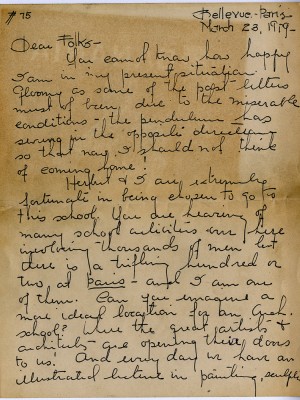 # 75
Bellevue - Paris
March 23, 1919 -
Dear Folks -
You cannot know how happy
I am in my present situation.
Gloomy as some of the past letters
must of been due to the miserable
conditions - the pendulum has
swung in the opposite direction -
so that now I should not think
of coming home!
Herbert & I are extremely
fortunate in being chosen to go to
this school. You are hearing of
many school activities over here
involving thousands of men but
there is a trifling hundred or
two at Paris - and I am one
of them. Can you imagine a
more ideal location for an Arch.
school? Where the great artists &
architects are opening their doors
to us! And every day we have an
illustrated lecture in painting, sculpt